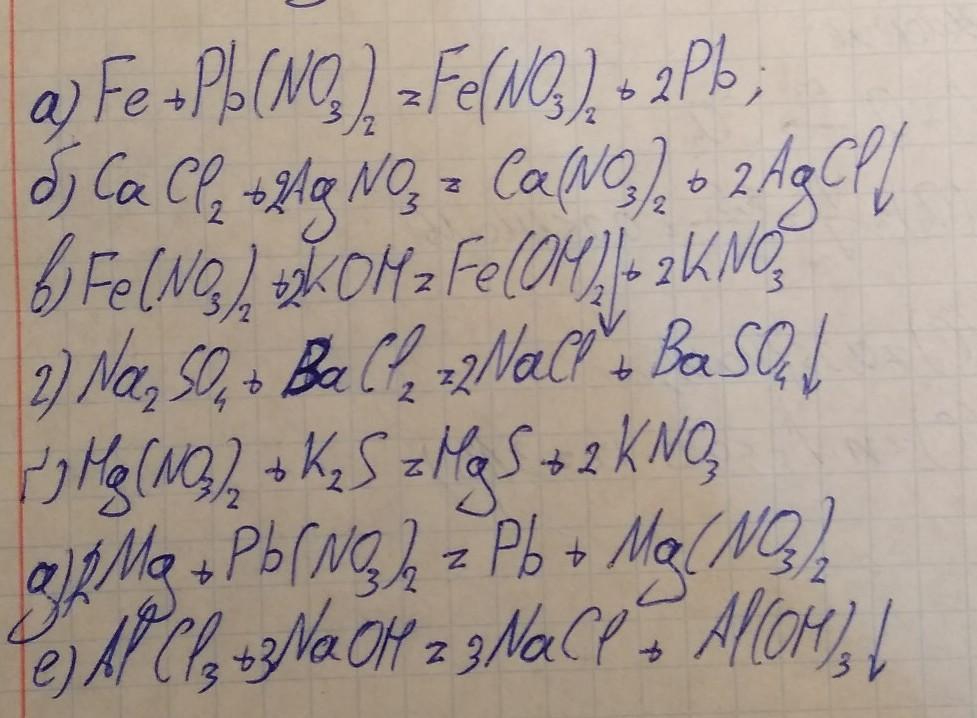 а) Fe + Pb(NO₃)₂ = Fe(NO₃)₂ + 2Pb;
б) CaCl₂ + 2AgNO₃ = Ca(NO₃)₂ + 2AgCl↓
в) Fe(NO₃)₂ + 2KOH = Fe(OH)₂↓ + 2KNO₃
г) Na₂SO₄ + BaCl₂ = 2NaCl + BaSO₄↓
г) Hg(NO₃)₂ + K₂S = HgS + 2KNO₃
д) 2Mg + Pb(NO₃)₂ = Pb + Mg(NO₃)₂
е) AlCl₃ + 3NaOH = 3NaCl + Al(OH)₃↓